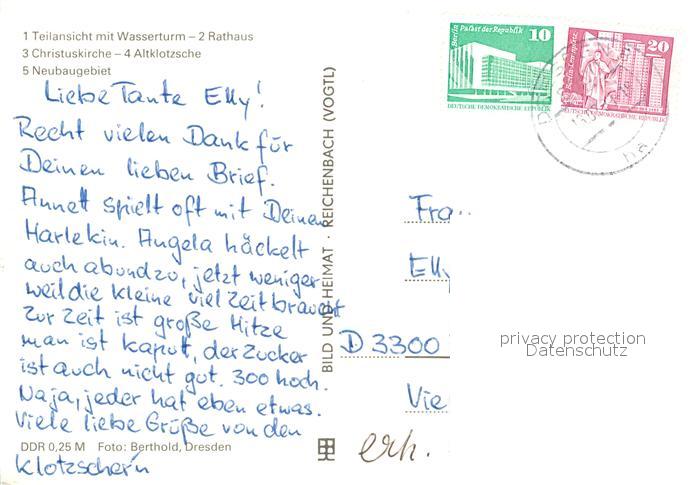 1 Teilansicht mit Wasserturm – 2 Rathaus
3 Christuskirche – 4 Altklotzsche
5 Neubaugebiet
Liebe Tante Elly!
Recht vielen Dank für
Deinen lieben Brief.
Annett spielt oft mit Deinem
Harlekin. Angela häckelt
auch abundzu, jetzt weniger
weil die kleine viel Zeit braucht
Zur Zeit ist große Hitze
man ist kaput, der Zucker
ist auch nicht gut. 300 hoch.
Naja, jeder hat eben etwas.
Viele liebe Grüße von den
DDR 0,25 M Foto: Berthold, Dresden
Klotzschern
BILD UND HEIMAT · REICHENBACH (VOGTL)
Berlin Palast der Republik
10
DEUTSCHE DEMOKRATISCHE REPUBLIK
Berlin-Leninplatz
20
DEUTSCHE DEMOKRATISCHE REPUBLIK
Fra
Elly
D 3300
Vie
erh.
privacy protection
Datenschutz